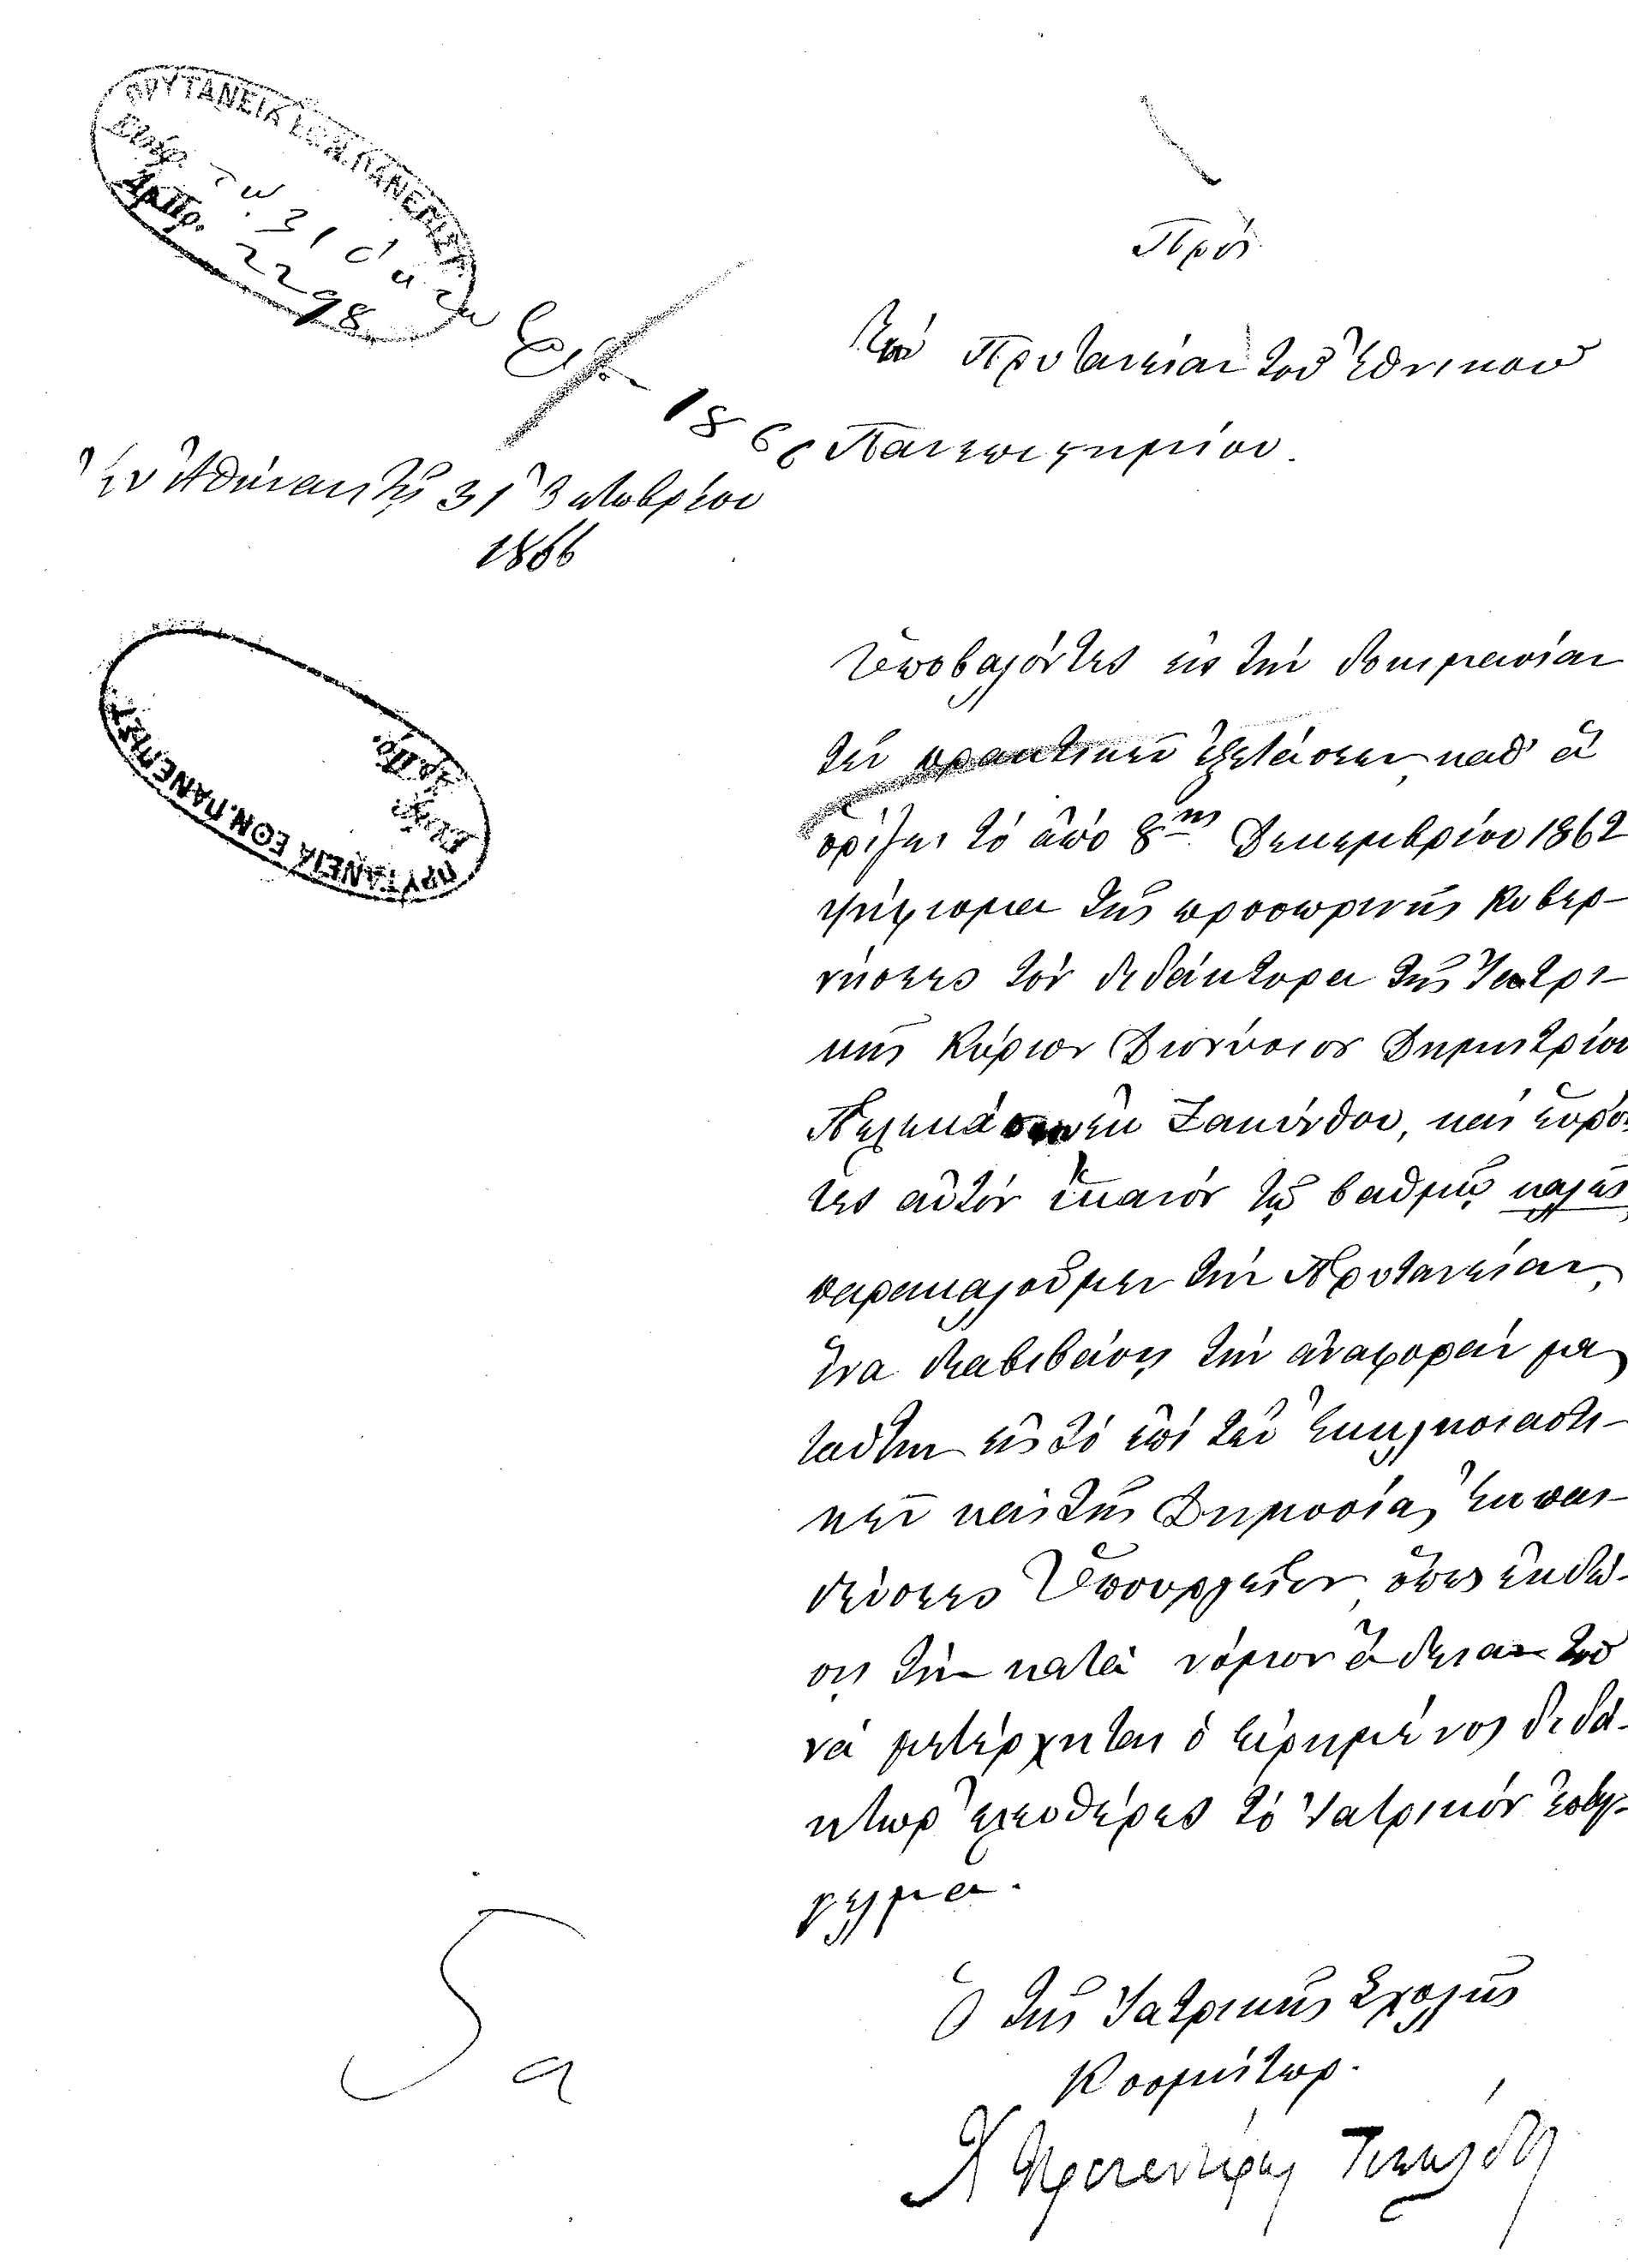 ΠΡΥΤΑΝΕΙΑ ΕΘΝ. ΠΑΝΕΠΙΣΤ.
Εἰσήρ. τῇ 31
Ἀρ. Πρ. 2298
1866
Πρὸς
τὴν Πρυτανείαν τοῦ Ἐθνικοῦ
Πανεπιστημίου.
Ἐν Ἀθήναις τῇ 31 Ὀκτωβρίου
1866
ΠΡΥΤΑΝΕΙΑ ΕΘΝ. ΠΑΝΕΠΙΣΤ.
Εἰσήρ.
Ἀρ. Πρ.
Ὑποβαλόντες εἰς τὴν δοκιμασίαν
τῶν πρακτικῶν ἐξετάσεων, καθ' ἃ
ὁρίζει τὸ ἀπὸ 8ης Δεκεμβρίου 1862
ψήφισμα τῆς προσωρινῆς Κυβερ-
νήσεως τὸν διδάκτορα τῆς Ἰατρι-
κῆς Κύριον Διονύσιον Δημητρίου
Πελεκάσην ἐκ Ζακύνθου, καὶ εὑρόν
τες αὐτὸν ἱκανὸν τῷ βαθμῷ καλῶς
παρακαλοῦμεν τὴν Πρυτανείαν,
ἵνα διαβιβάσῃ τὴν ἀναφοράν μας
ταύτην εἰς τὸ ἐπὶ τῶν Ἐκκλησιαστι-
κῶν καὶ τῆς Δημοσίας Ἐκπαι-
δεύσεως Ὑπουργεῖον, ὅπως ἐκδώ-
σῃ τὴν κατὰ νόμον ἄδειαν τοῦ
νὰ μετέρχηται ὁ εἰρημένος διδά-
κτωρ ἐλευθέρως τὸ Ἰατρικὸν ἐπάγ-
γελμα.
Ὁ τῆς Ἰατρικῆς Σχολῆς
Κοσμήτωρ.
5α